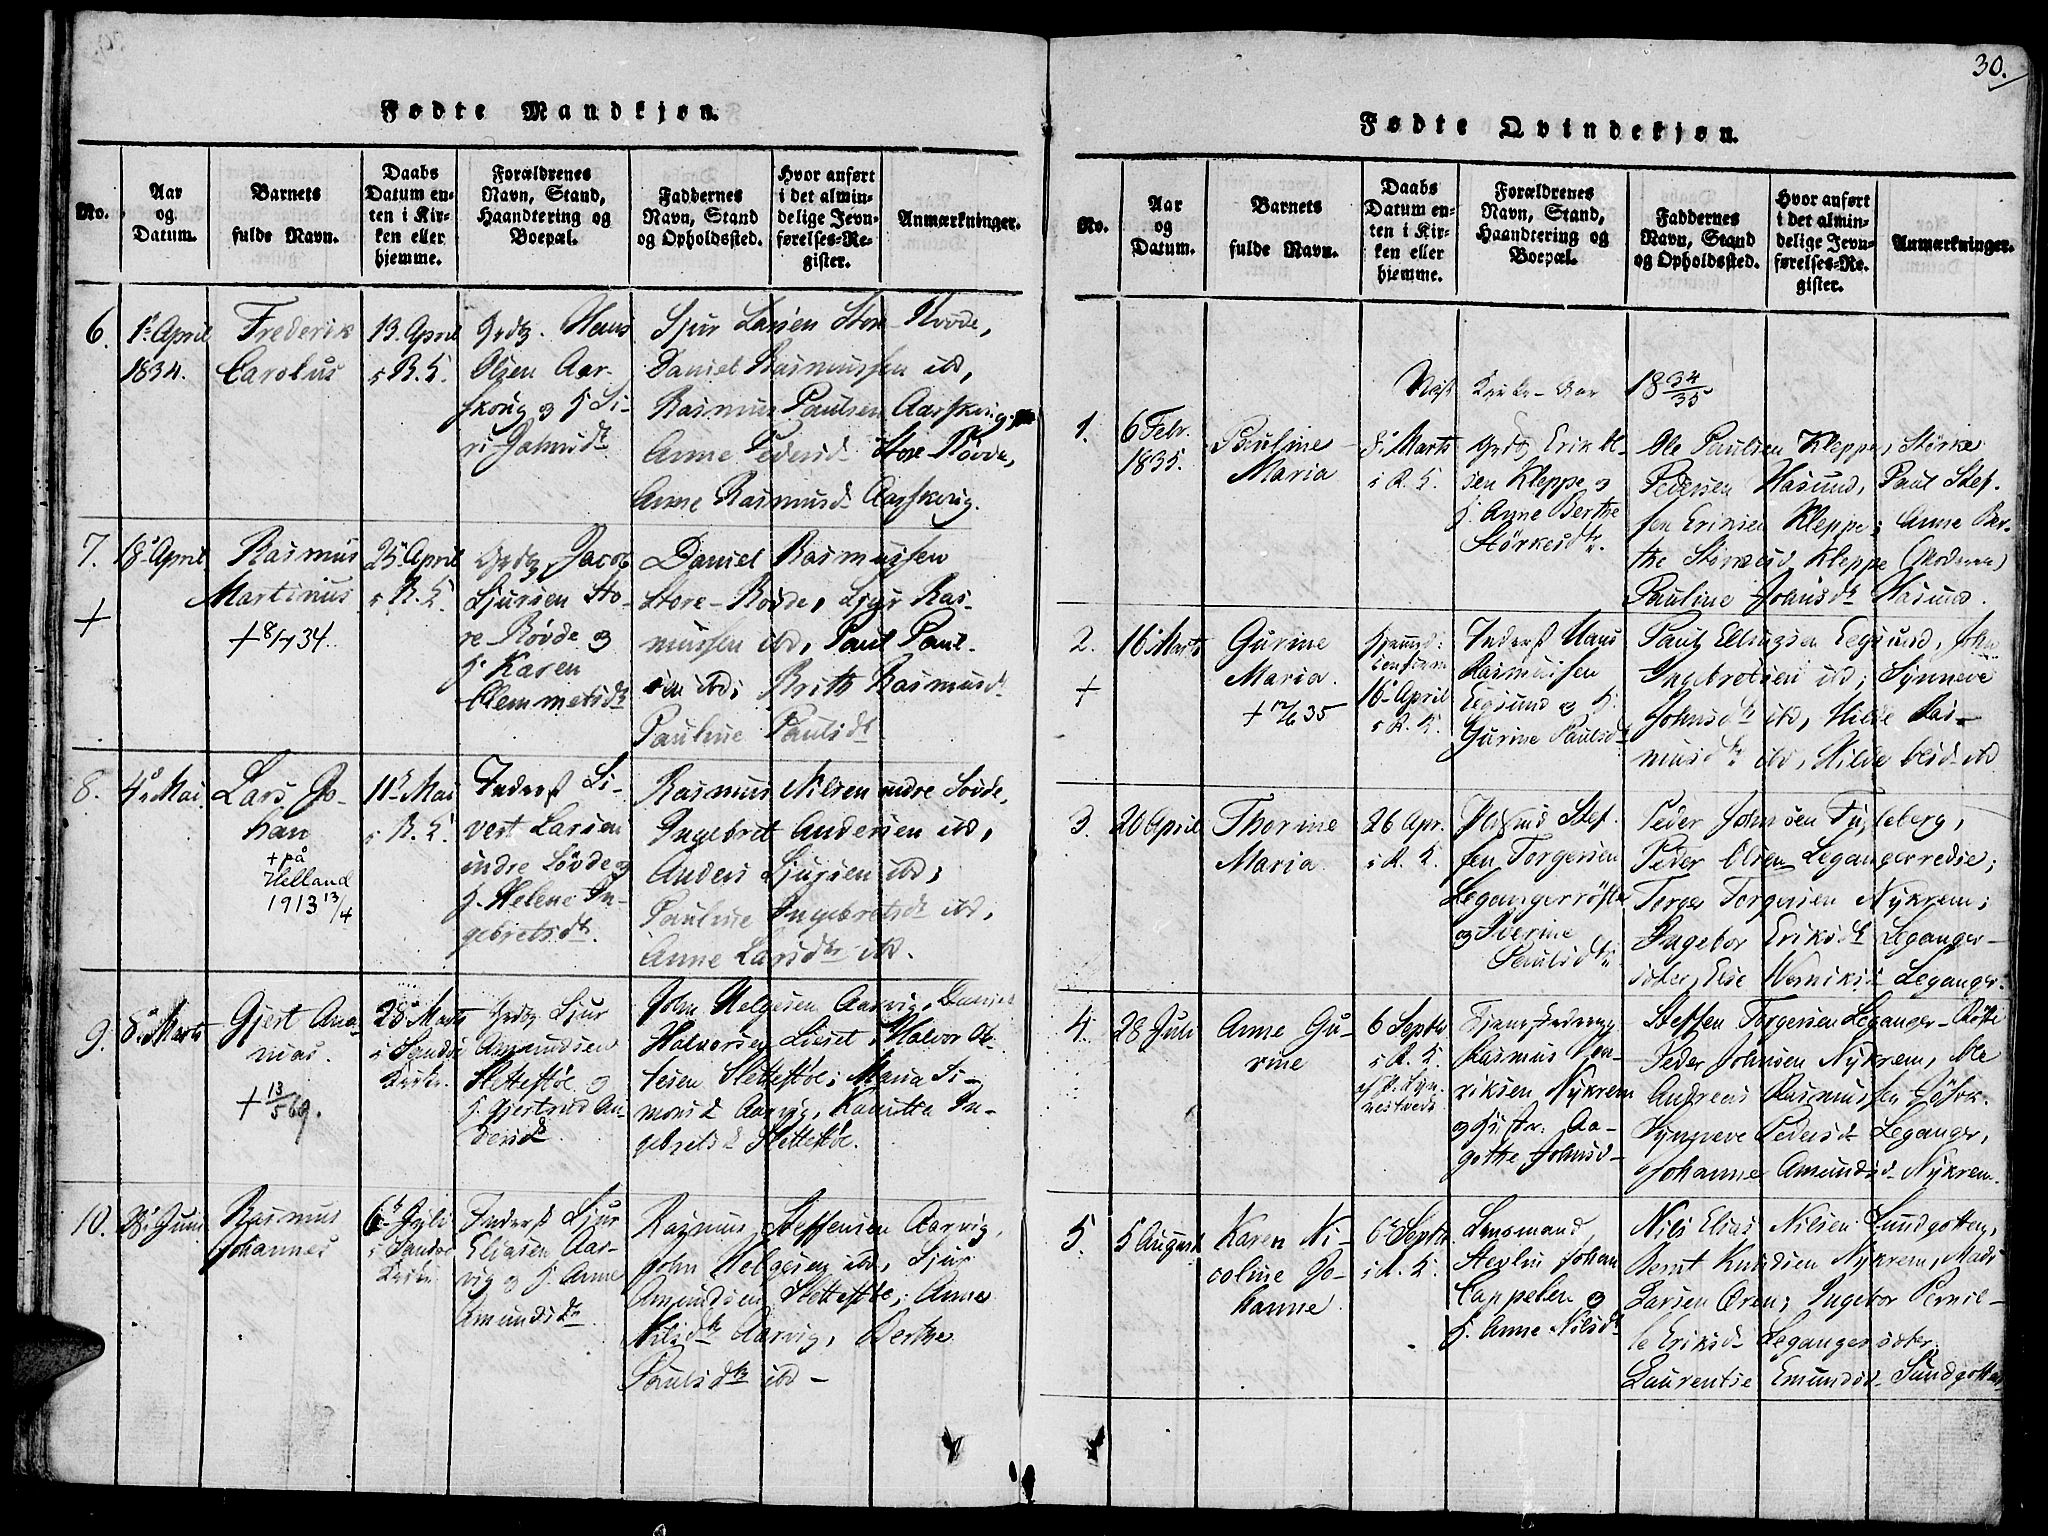 30.
Fødte Mandkjøn.
No.
Aar
og
Datum.
Barnets
fulde Navn.
Daabs
Datum en-
ten i Kir-
ken eller
hjemme.
Forældrenes
Navn, Stand,
Haandtering og
Boepæl.
Faddernes
Navn, Stand
og Opholdssted.
Hvor anført
i det almin-
delige Jevn-
førelses-Re-
gister.
Anmærkninger.
6.
1ste April
1834.
Frederik
Carolus
13. April
i R. K.
Grdbr. Hans
Olsen Aar-
skoug og K. Si-
ri Johnsdt
Sjur Larsen Store-Røvde,
Daniel Rasmussen ibd,
Rasmus Paulsen Aarskoug;
Anne Pedersd Store Røvde,
Anne Rasmusd Aarskoug.
7.
+
18 April
Rasmus
Martinus
+ 8/7 34.
25 April
i R. K.
Jacob
Sjursen Sto-
re-Røvde og
K. Karen
Clemmetsdt
Daniel Rasmussen
Store-Røvde, Sjur Ras-
mussen ibd, Paul Paul-
sen ibd; Brith Rasmusd
Pauline Paulsdt
8.
4 Mai
Lars Jo-
han
+ på
Helland
1913 13/4
11 Mai
i R. K.
Inderst Si-
vert Larsen
indre Søvde og
K. Helene In-
gebretsdt.
Rasmus Nilsen indre Søvde,
Ingebret Andersen ibd,
Anders Sjursen ibd;
Pauline Ingebretsdt ibd,
Anne Larsdtr ibd.
9.
8 Marts
Gjert Ana-
nias.
+ 13/5 69.
28 Marts
i Sandø
Kirke.
Sjur
Amundsen
Slettestøl og
K. Gjertrud An-
dersd
John Helgesen Aarvig, Daniel
Halvorsen Liset, Halvor
Slettestøl; Maria Si-
monsd Aarvig, In-
gebretsd Slettestøl.
10.
28 Juni
Rasmus
Johannes
6 Juli
i Sandøe
Kirke
Inderst Sjur
Eliasen Aar-
vig og K. Anne
Amundsdt.
Rasmus Steffensen Aarvig,
John Helgesen ibd, Sjur
Amundsen Slettestøl; Anne
Nilsdt Aarvig, Berthe
Paulsdtr ibd
Fødte Qvindekjøn.
No.
Aar
og
Datum.
Barnets
fulde Navn.
Daabs
Datum en-
ten i Kir-
ken eller
hjemme.
Forældrenes
Navn, Stand,
Haandtering og
Boepæl.
Faddernes
Navn, Stand
og Opholdssted.
Hvor anført
i det almin-
delige Jevn-
førelses-Re-
gister.
Anmærkninger.
Kirke-Aar 1834/35
1.
6 Febr.
1835.
Pauline
Maria
8 Marts
i R. K.
Erik
sen Kleppe og
K. Anne Berthe
Størkesdtr.
Ole Paulsen Kleppe, Størke
Pedersen Hasund, Paul Stef-
fen Eriksen Kleppe; Anne Ber-
the Størkesd Kleppe (Moderen)
Pauline Johnsdt Hasund.
2.
+
16 Marts
Gurine
Maria.
+ 12/6 35
16 April
i R. K.
Inderst Hans
Rasmussen
Eegsund og K.
Gurine Paulsdt
Paul Ellingsen Eegsund, John
Ingebretsen ibd; Synneve
Johnsdtr ibd, Hilde Ras-
musdtr ibd, Hilde Olsd ibd
3.
20 April
Thorine
Maria
26 Apr.
i R. K.
Stef-
fen Torgersen
Legangerrøste
og Sverine
Paulsdtr
Peder Johnsen Fugleberg,
Peder Olsen Legangerredse;
Torger Torgersen Nykrem;
Ingebor Eriksdt Leganger-
sæter, Else Leganger
4.
28 Juli
Anne Gu-
rine
6 Septbr
i R. K.
Rasmus Hen-
riksen Nykrem
og Hustr. Aa-
gothe Johnsd
Steffen Torgersen Leganger-Røste
Peder Johnsen Nykrem, Ole
Andreas Rasmussen
Synneve Pedersd Leganger,
Johanne Amundsd Nykrem.
5.
5 August
Karen Ni-
coline Jo-
hanne
6 Septbr
i R. K.
Lensmand
Johan
Cappelen og
K. Anne Nilsdt
Nils Elias Nilsen Sundgotten,
Bernt Knudsen Nykrem, Mads
Larsen Øren; Ingebor Pernil-
le Eriksd Legangersæter,
Laurentse Emundsd Sundgotten